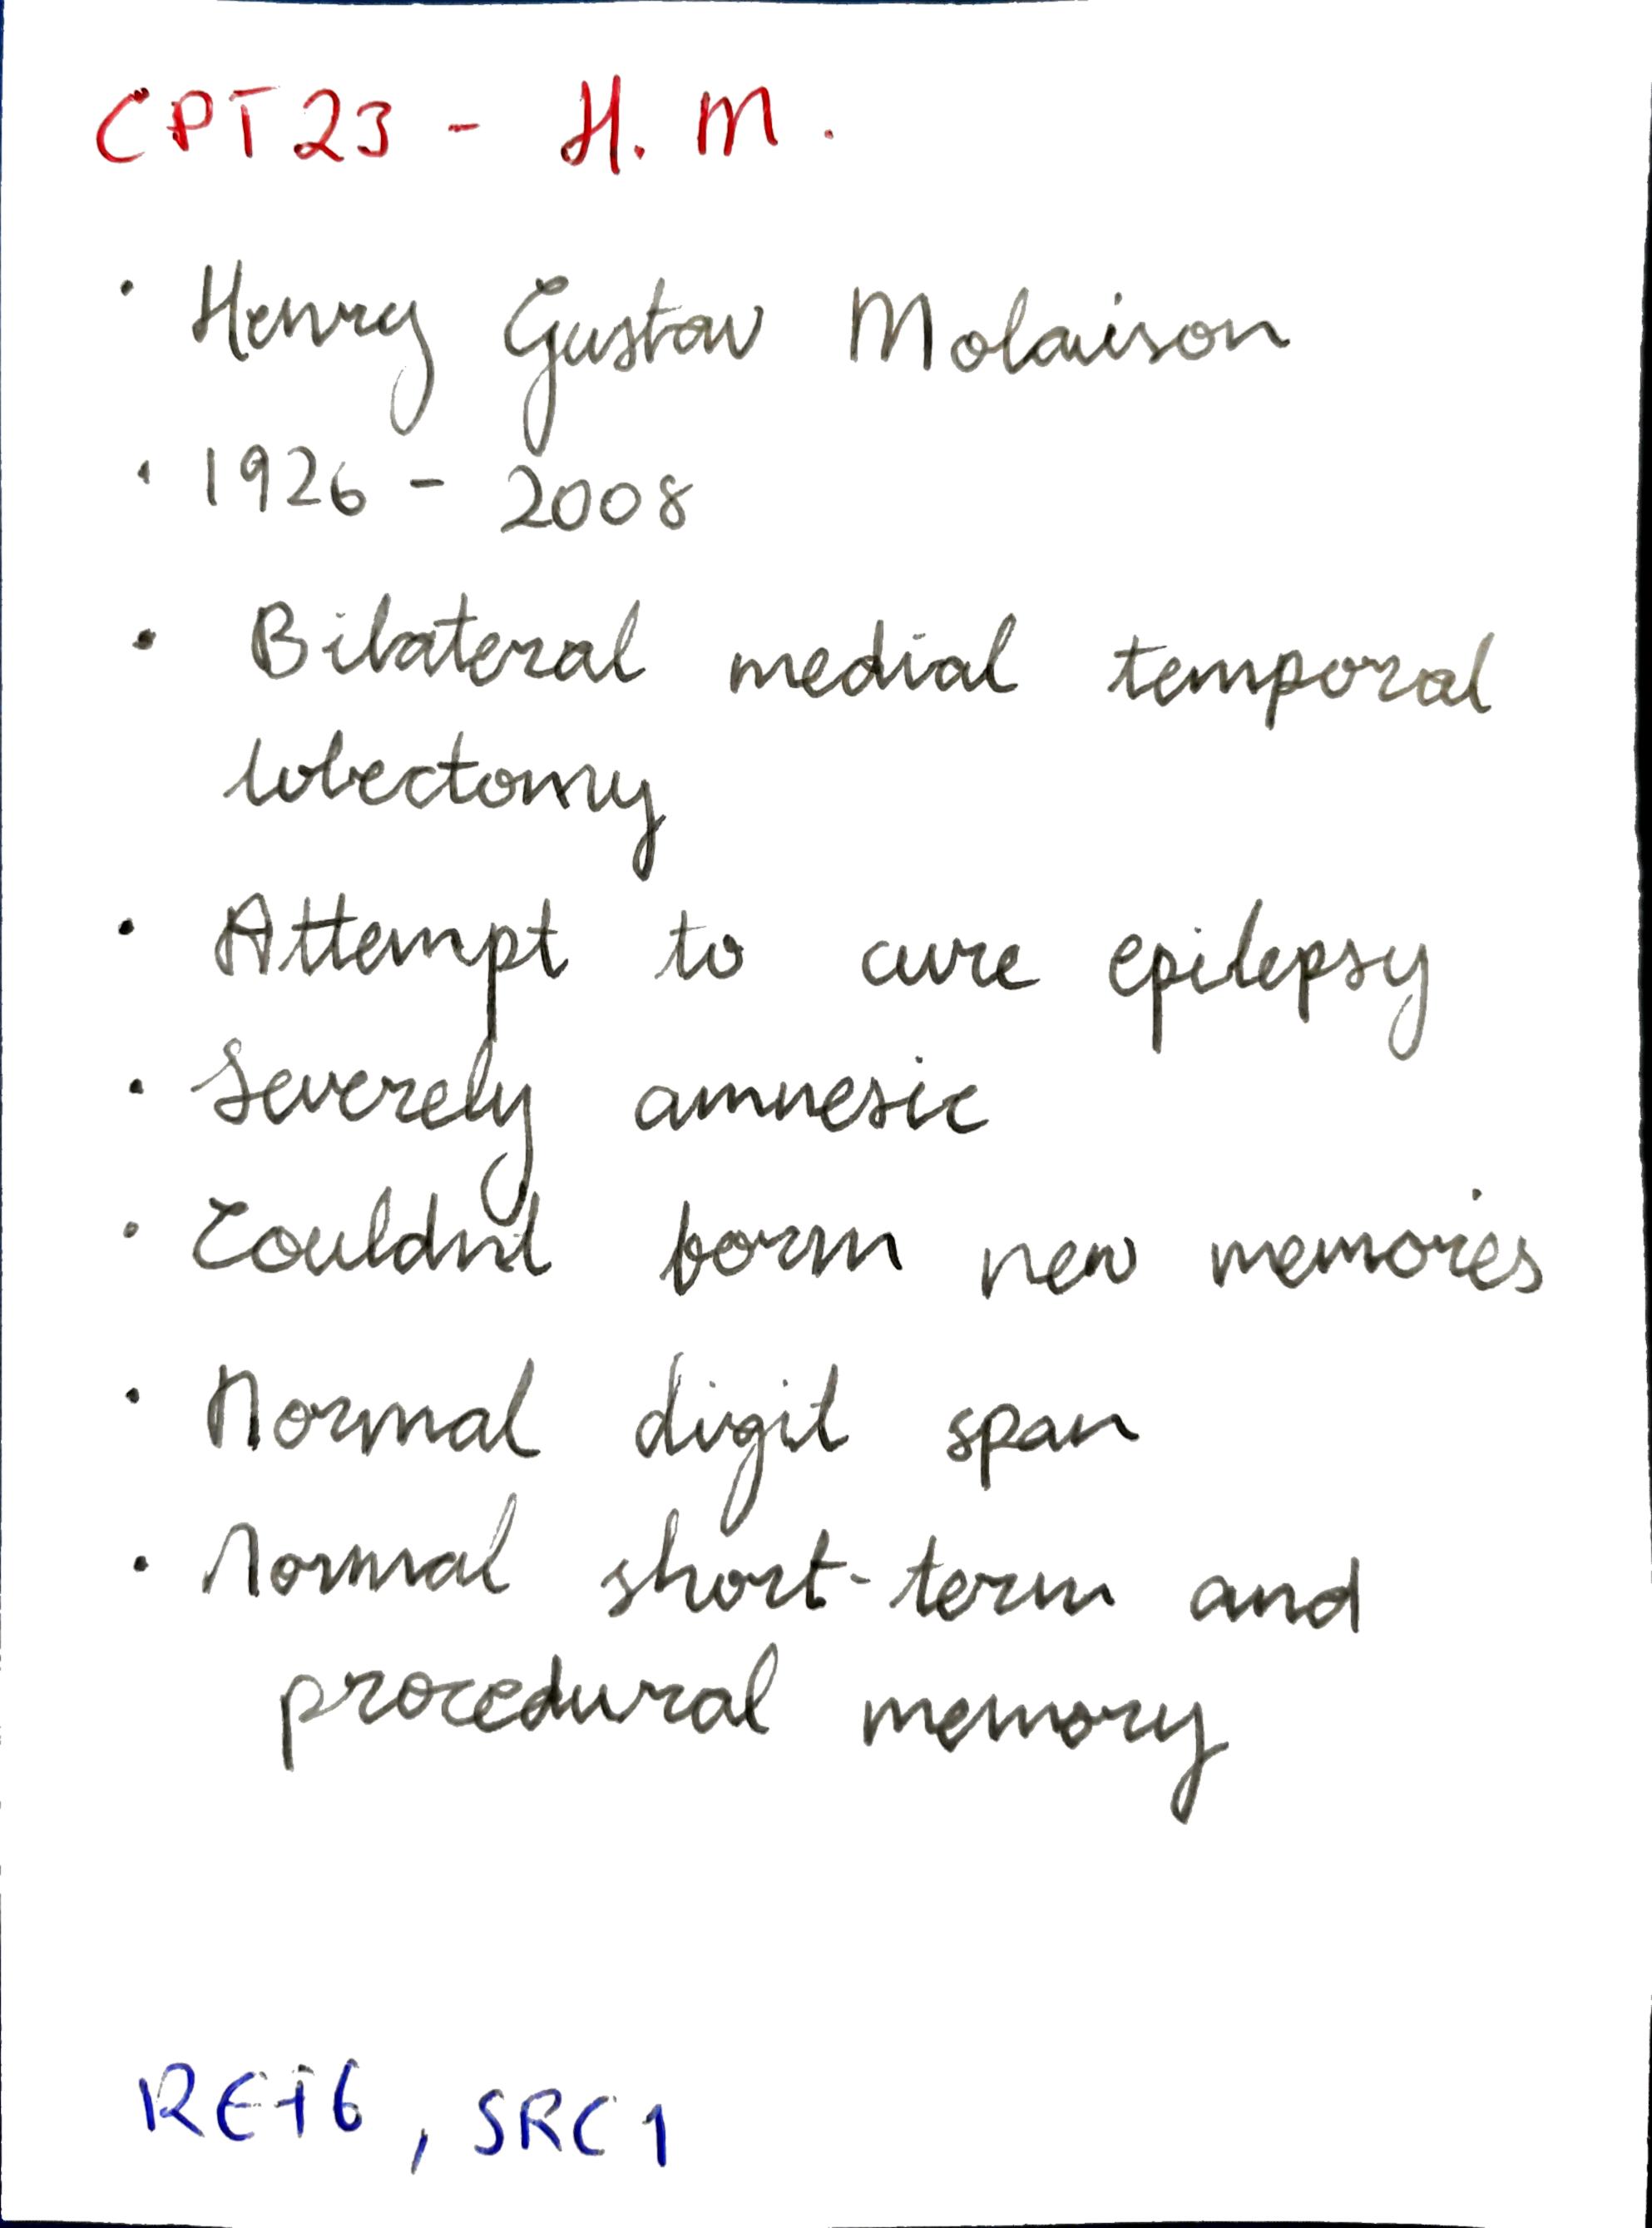 CPT23 - H.M.
· Henry Gustav Molaison
· 1926 - 2008
· Bilateral medial temporal
lobectomy
· Attempt to cure epilepsy
· Severely amnesic
· Couldnt form new memories
· Normal digit span
· Normal short-term and
procedural memory
REF6, SRC1